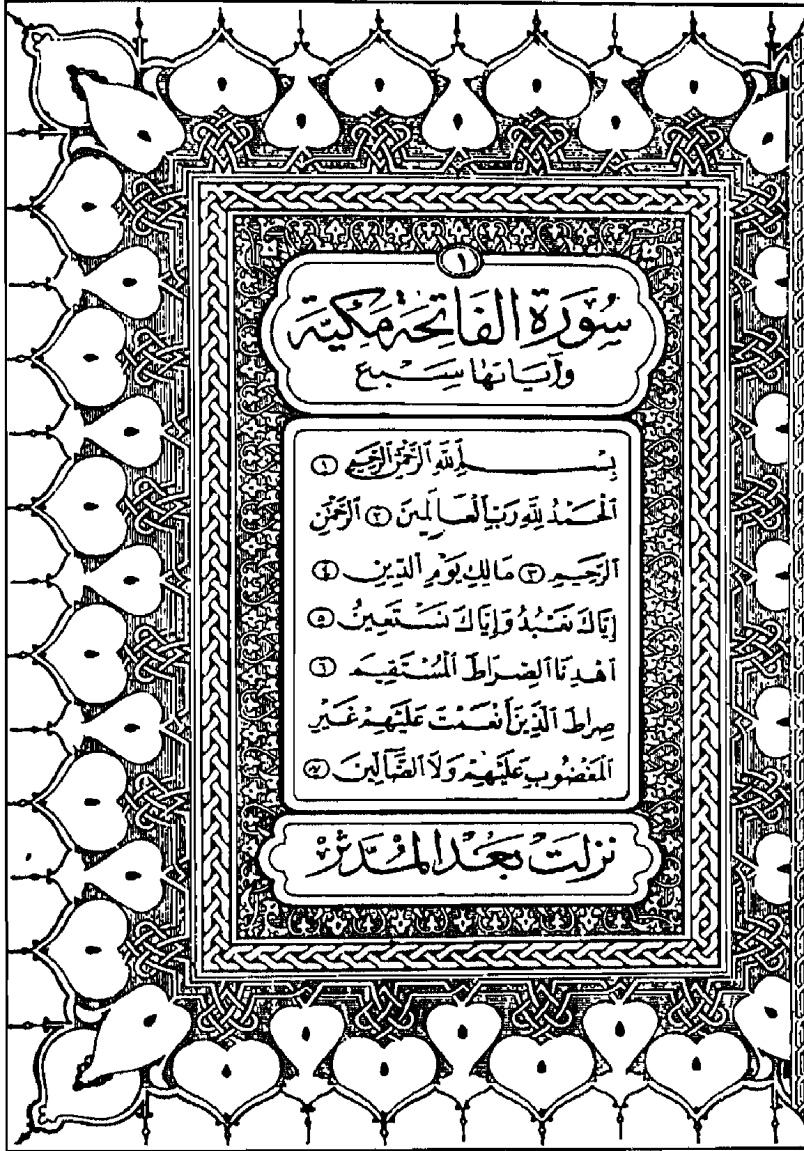 ١
سُورَة الفَاتِحَة مَكيّة
وآيَاتها سَبع
بِسْمِ ٱللَّهِ ٱلرَّحْمَٰنِ ٱلرَّحِيمِ ١
ٱلْحَمْدُ لِلَّهِ رَبِّ ٱلْعَالَمِينَ ٢ ٱلرَّحْمَٰنِ
ٱلرَّحِيمِ ٣ مَالِكِ يَوْمِ ٱلدِّينِ ٤
إِيَّاكَ نَعْبُدُ وَإِيَّاكَ نَسْتَعِينُ ٥
ٱهْدِنَا ٱلصِّرَاطَ ٱلْمُسْتَقِيمَ ٦
صِرَاطَ ٱلَّذِينَ أَنْعَمْتَ عَلَيْهِمْ غَيْرِ
ٱلْمَغْضُوبِ عَلَيْهِمْ وَلَا ٱلضَّآلِّينَ ٧
نزلت بَعْد المُدَّثِّر